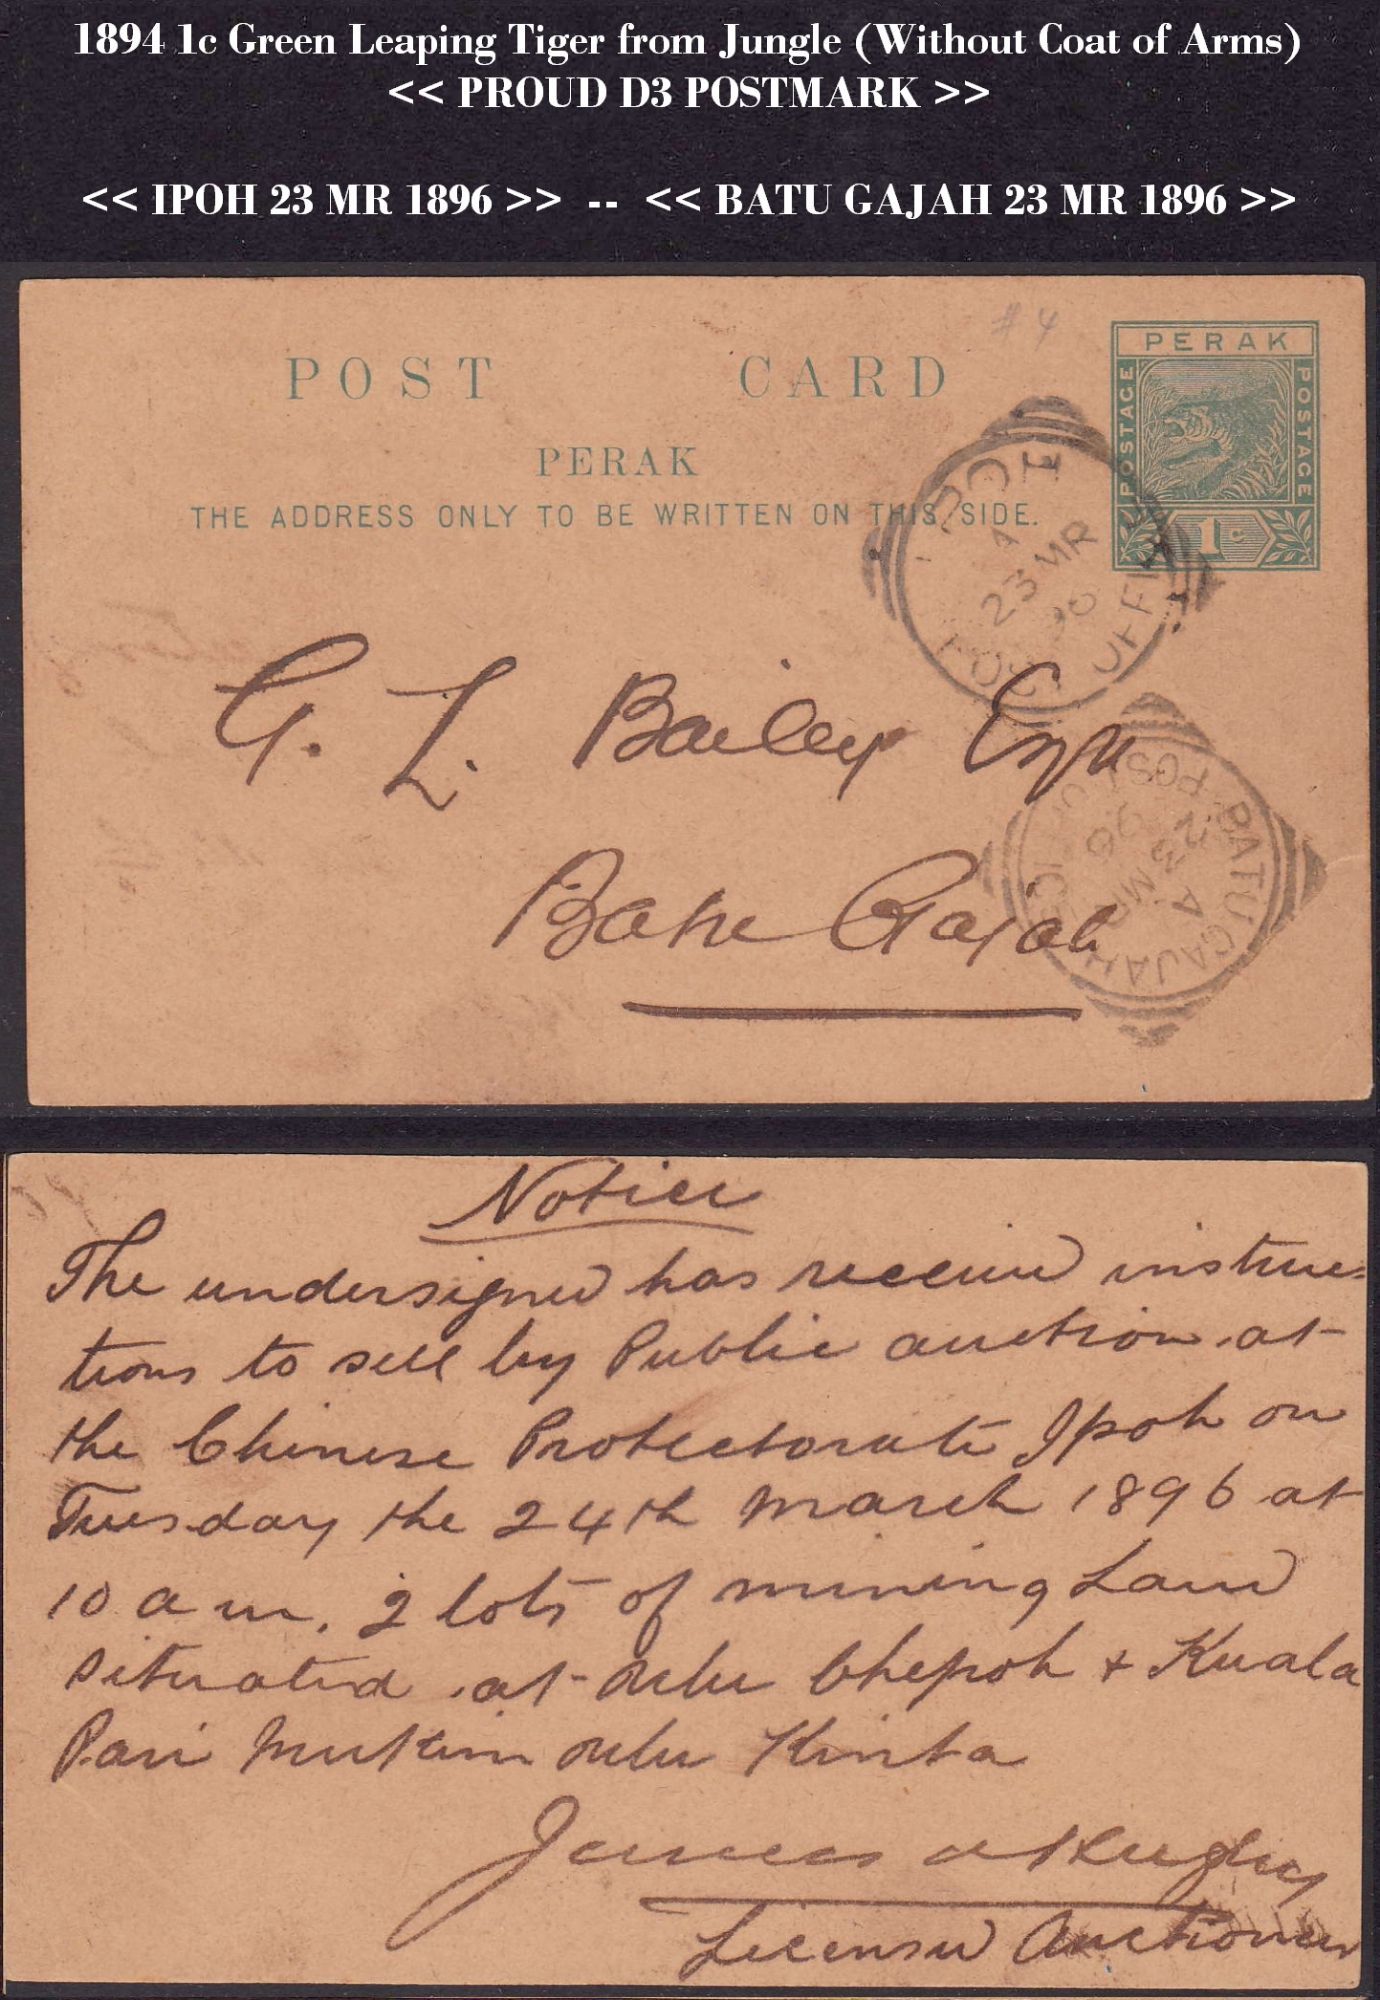 1894 1c Green Leaping Tiger from Jungle (Without Coat of Arms)
<< PROUD D3 POSTMARK >>
<< IPOH 23 MR 1896 >> -- << BATU GAJAH 23 MR 1896 >>
# 4
POST CARD
PERAK
THE ADDRESS ONLY TO BE WRITTEN ON THIS SIDE.
PERAK
POSTAGE
POSTAGE
1c
IPOH
A
23 MR
96
POST OFFICE
G. L. Bailey Esqre
Batu Gajah
BATU GAJAH
A
23 MR
96
POST OFFICE
Notice
The undersigned has received instruc=
tions to sell by Public auction at
the Chinese Protectorate Ipoh on
Tuesday the 24th March 1896 at
10 a m. 2 lots of mining Land
situated at Ulu Chepoh + Kuala
Pari Mukim Ulu Kinta
James
Licensed Auctioneer